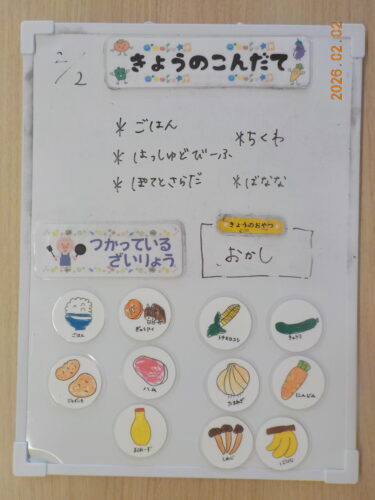 2026.02.02
2/2
きょうのこんだて
*ごはん
*ちくわ
*はっしゅどびーふ
*ぽてとさらだ
*ばなな
つかっている
ざいりょう
きょうのおやつ
おかし
ごはん
ぎゅうにく
トウモロコシ
きゅうり
じゃがいも
ハム
たまねぎ
にんじん
まよねーず
しめじ
ばなな